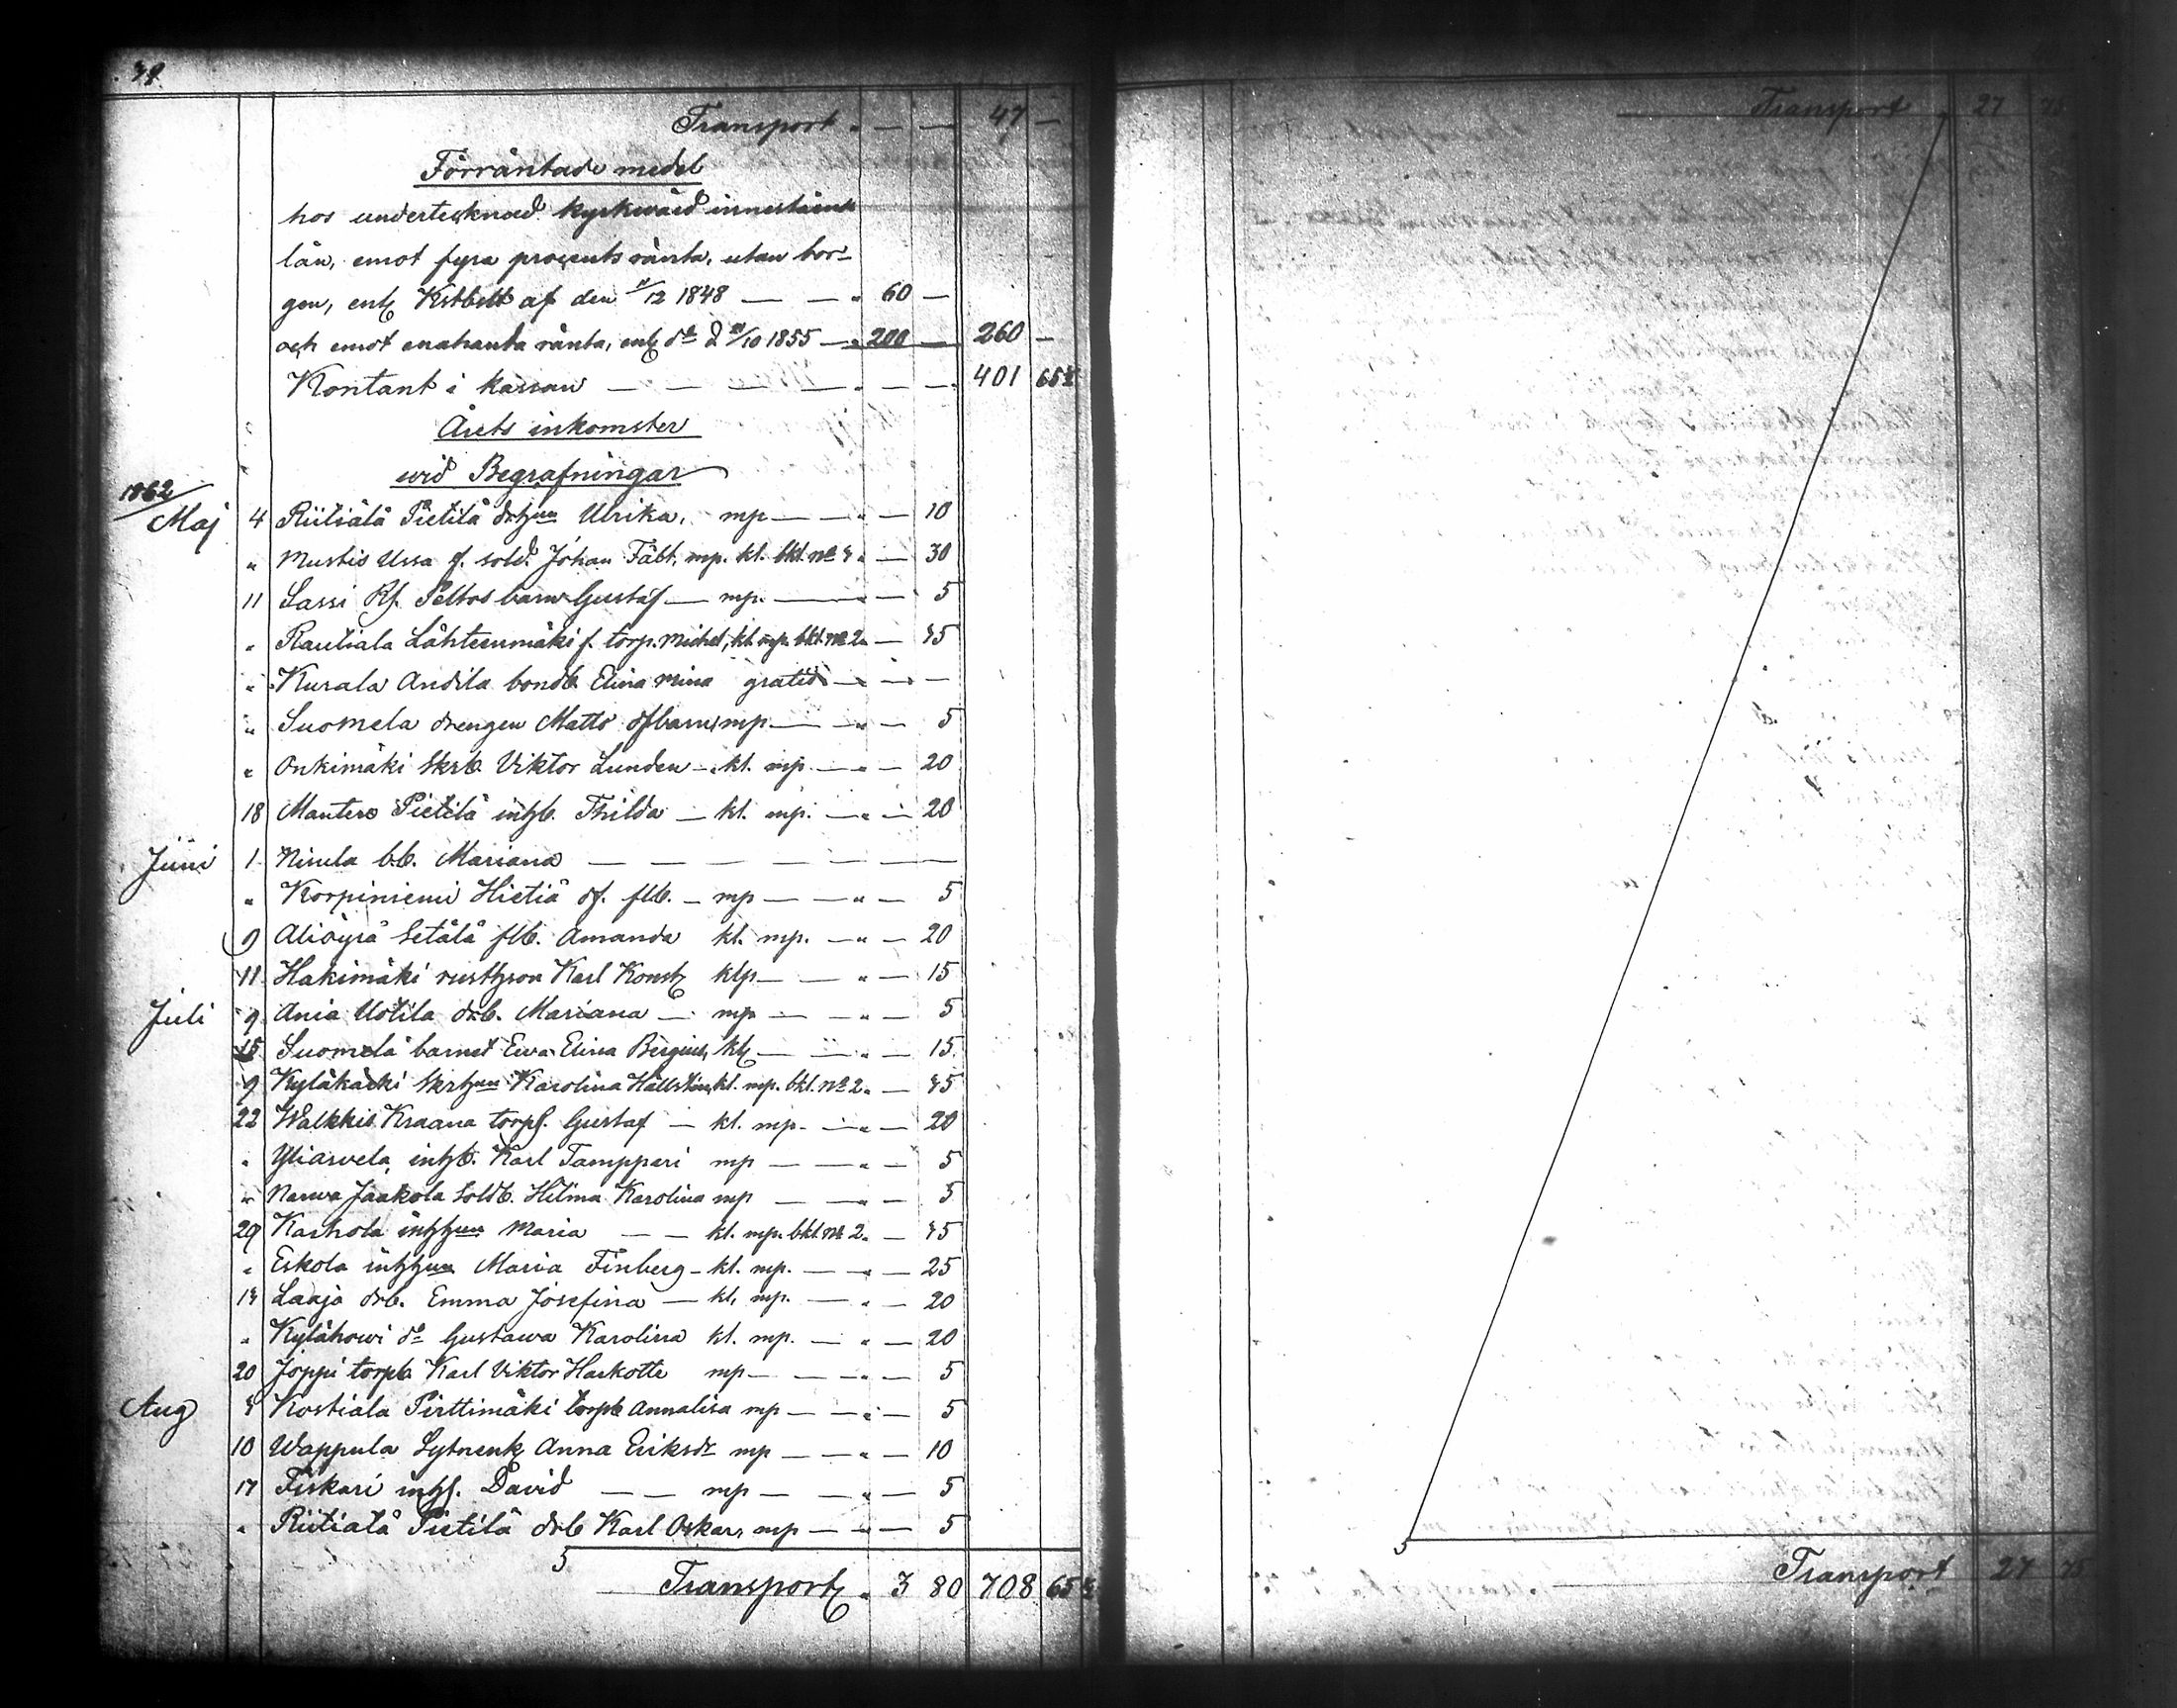 Transport " — — 47 —
Förräntade medel
hos undertecknad kyrkvärd innestående
lån, emot fyra procents ränta, utan bor-
gen, enl. Kstbess af den /12 1848 — — " 60 —
och emot enahanda ränta, enl. do d /10 1855 — " 200 — 260 —
Kontant i kassan — — — — " — — 401 65½
Årets inkomster
wid Begrafningar
1862
Maj 4 Riitiälä Pietilä drhun Ulrika, mp — — " — 10
" Mustis Ussa f. sold. Johan Fält, mp. kl. bkl. No 4 " — 30
11 Sassi Rf. Peltos barn Gustaf — mp. — — 5
" Rautiala Lähteenmäki f. torp. Michel, kl. mp. bkl. No 2 " — 45
" Kurala Andila bondb. Elina Mina gratis — " —
" Suomela drengen Matts dfbarn, mp — " — 5
" Onkimäki Skrb. Viktor Lunden — kl. mp — " — 20
18 Mantere Pietilä inhb. Thilda — kl. mp. — " — 20
Juni 1 Nisula b.b. Mariana — — — — — — —
" Korpiniemi Hietiä df. flb. — mp — — " — 5
9 Aliöyrä Setälä flb. Amanda kl. mp. — " — 20
11 Hakimäki rusthson Karl Konst. klp — — " — 15
Juli 9 Ania Uotila drb. Mariana — mp — — " — 5
15 Suomela barnet Ewa Elina Bergius, kl. — — " — 15
9 Kyläkarki Skrhun Karolina Hällsten, kl. mp. bkl. No 2 " — 45
22 Walkkis Kraana torps. Gustaf — kl. mp. — " — 20
" Yliarvela, inhb. Karl Tamppari mp — — " — 5
" Narwa Jaakola Soldb. Hilma Karolina mp — — " — 5
29 Karhola inhhun Maria — — kl. mp. bkl. No 2 " — 45
" Eskola inhhun Maria Finberg — kl. mp. — " — 25
14 Laajo drb. Emma Josefina — kl. mp. — " — 20
" Kylähowi do Gustawa Karolina kl. mp. — " — 20
20 Joppi torpb. Karl Viktor Harkotte mp — — " — 5
Aug 4 Kostiala Pirttimäki torpb Annalisa mp — — " — 5
10 Wappula Sytnenk. Anna Eriksdr mp — — " — 10
17 Fiskari inhs. David — — mp — — " — 5
" Riitialä Pietilä drb Karl Oskar, mp — " — 5
Transport " 3 80 708 65½
Transport 27 75
Transport 27 75